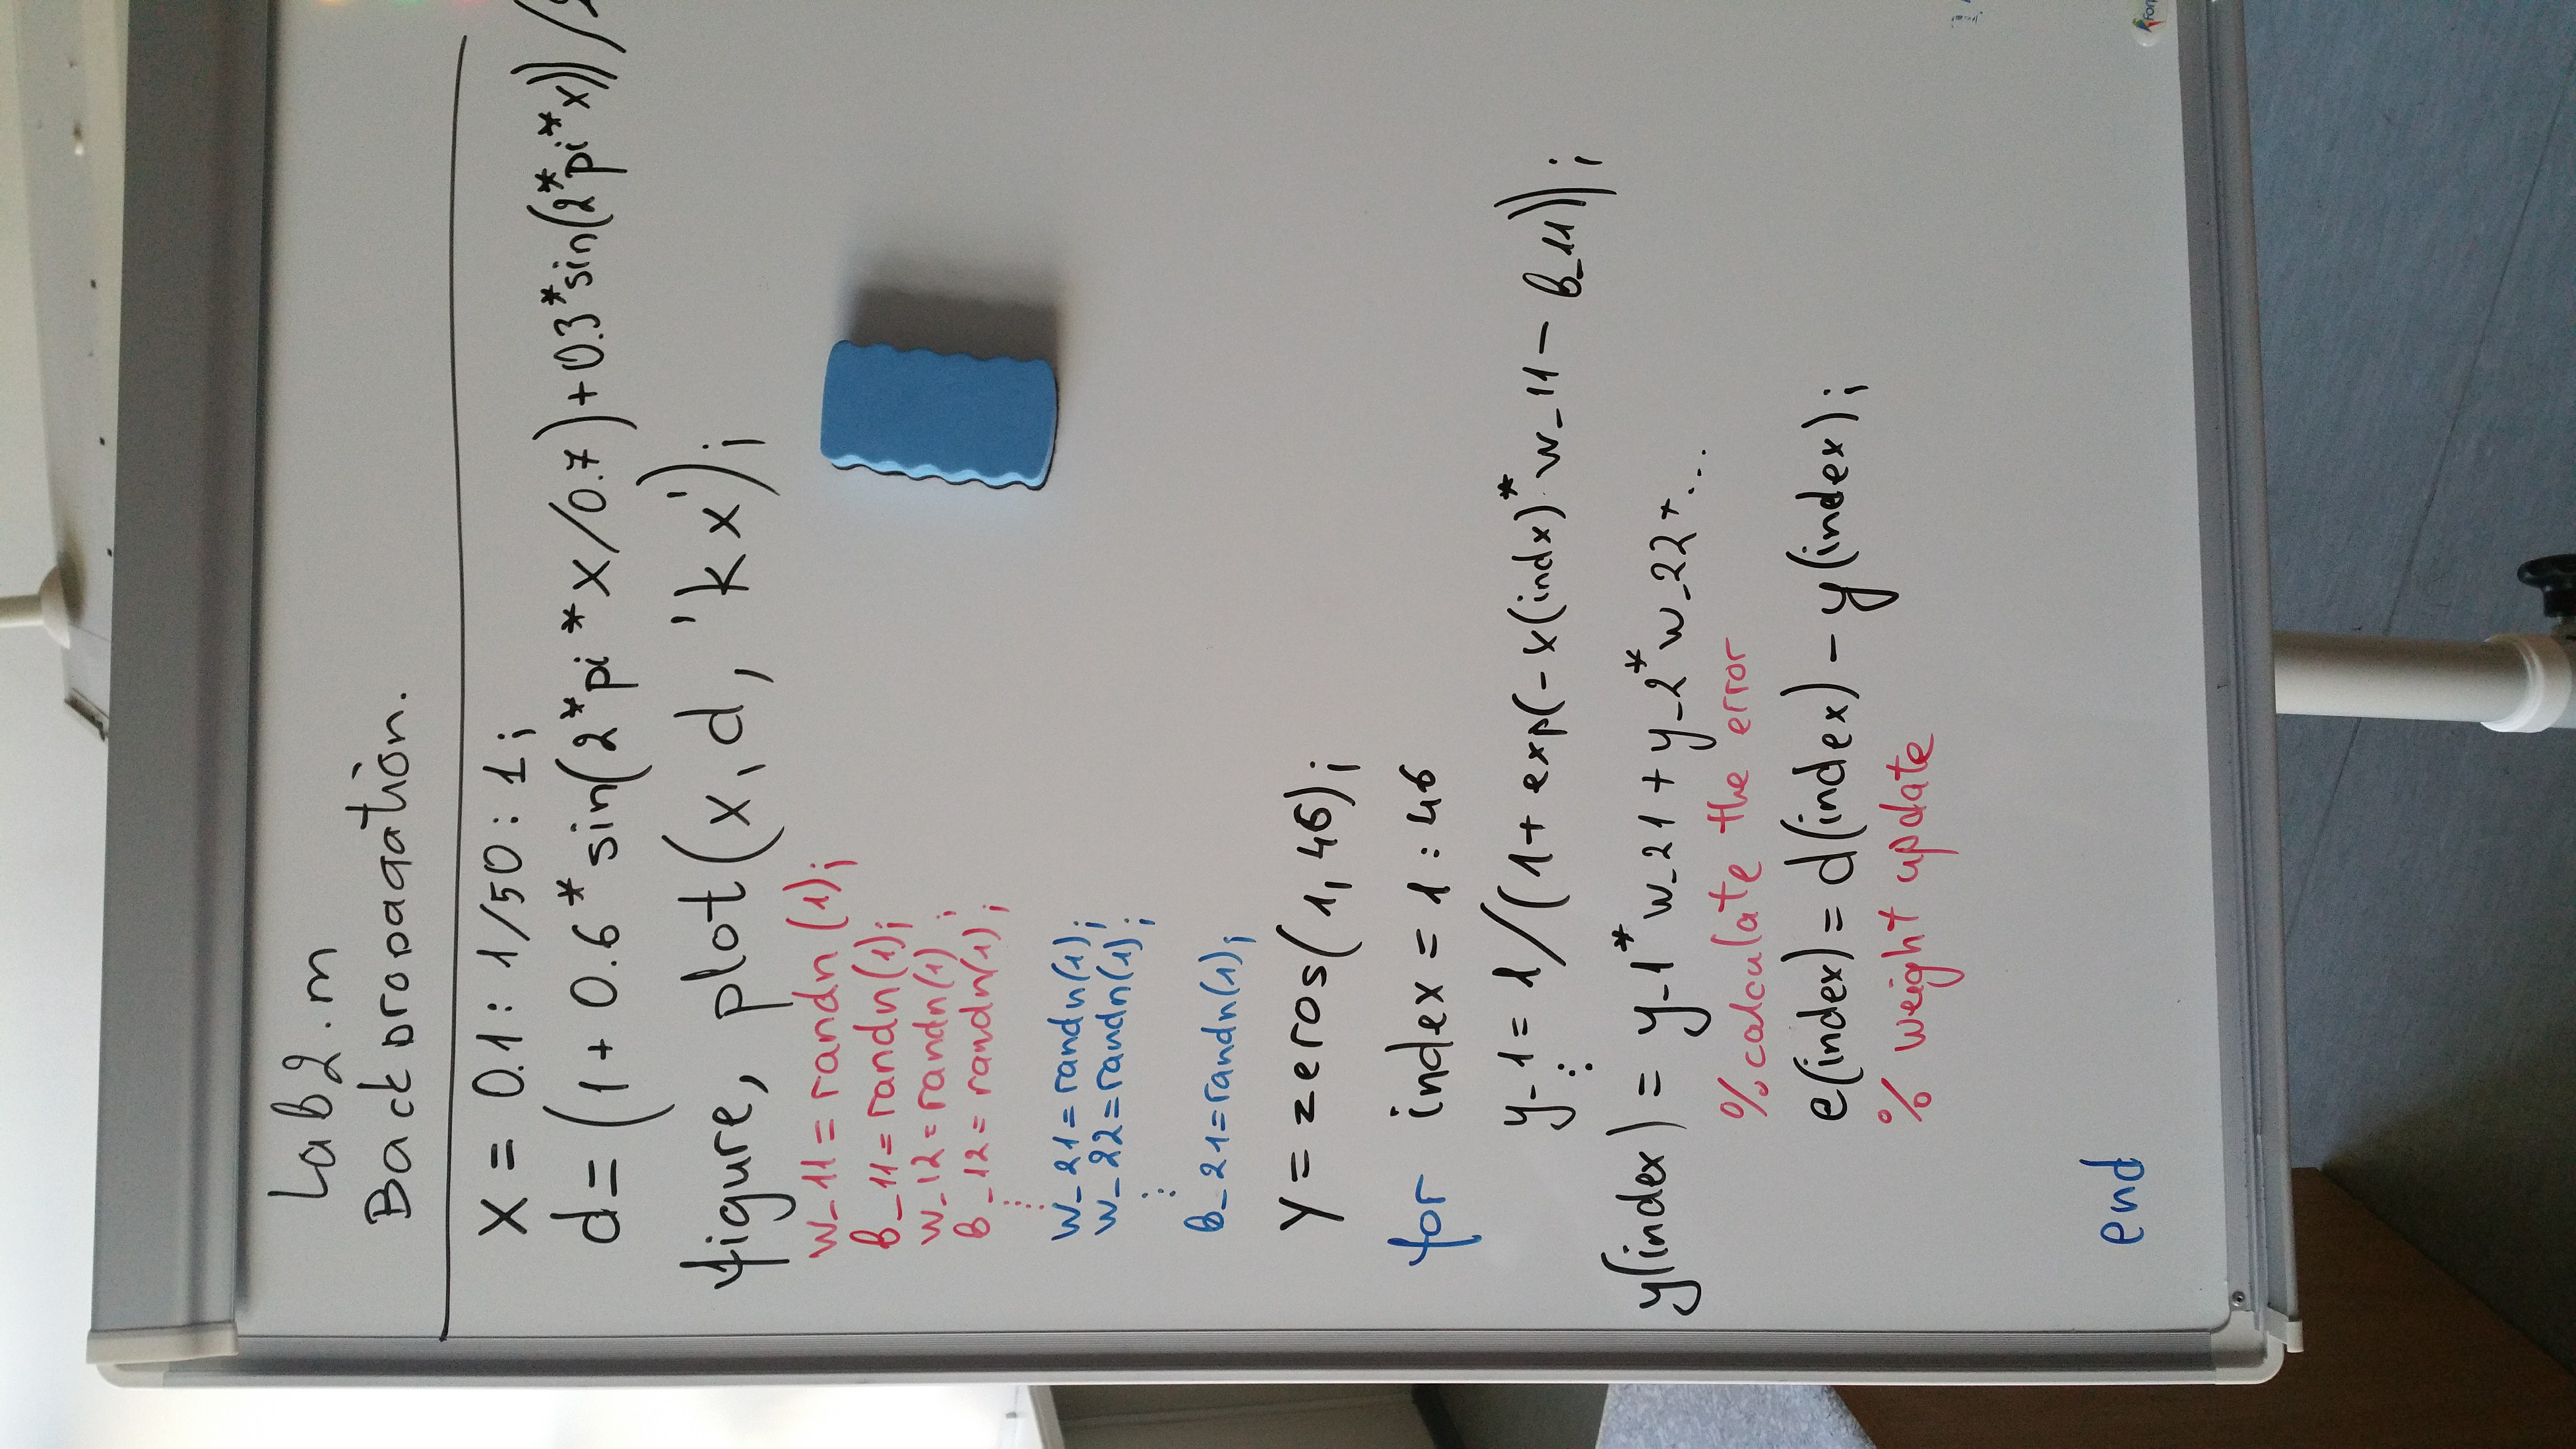 Lab2.m
Backpropagation.
x = 0.1 : 1/50 : 1;
d = (1 + 0.6*sin(2*pi*x/0.7) + 0.3*sin(2*pi*x)) /
figure, plot(x, d, 'kx');
w_11 = randn(1);
b_11 = randn(1);
w_12 = randn(1);
b_12 = randn(1);
⋮
w_21 = randn(1);
w_22 = randn(1);
⋮
b_21 = randn(1);
Y = zeros(1, 46);
for index = 1 : 46
y_1 = 1/(1 + exp(-x(indx)*w_11 - b_11));
⋮
y(index) = y_1*w_21 + y_2*w_22 + ...
% calculate the error
e(index) = d(index) - y(index);
% weight update
end